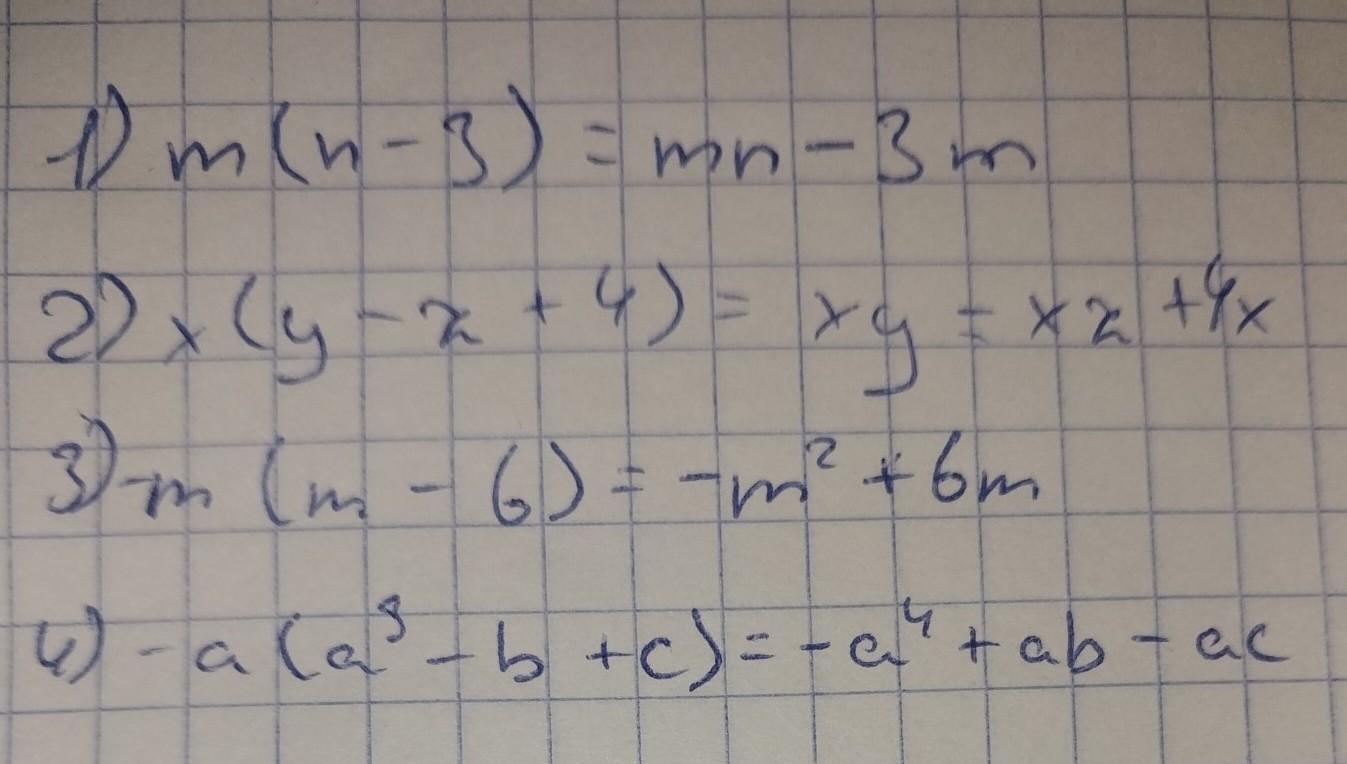 1) m(n-3) = mn - 3m
2) x(y - z + 4) = xy = xz + 4x
3) -m (m - 6) = -m² + 6m
4) -a (a³ - b + c) = -a⁴ + ab - ac